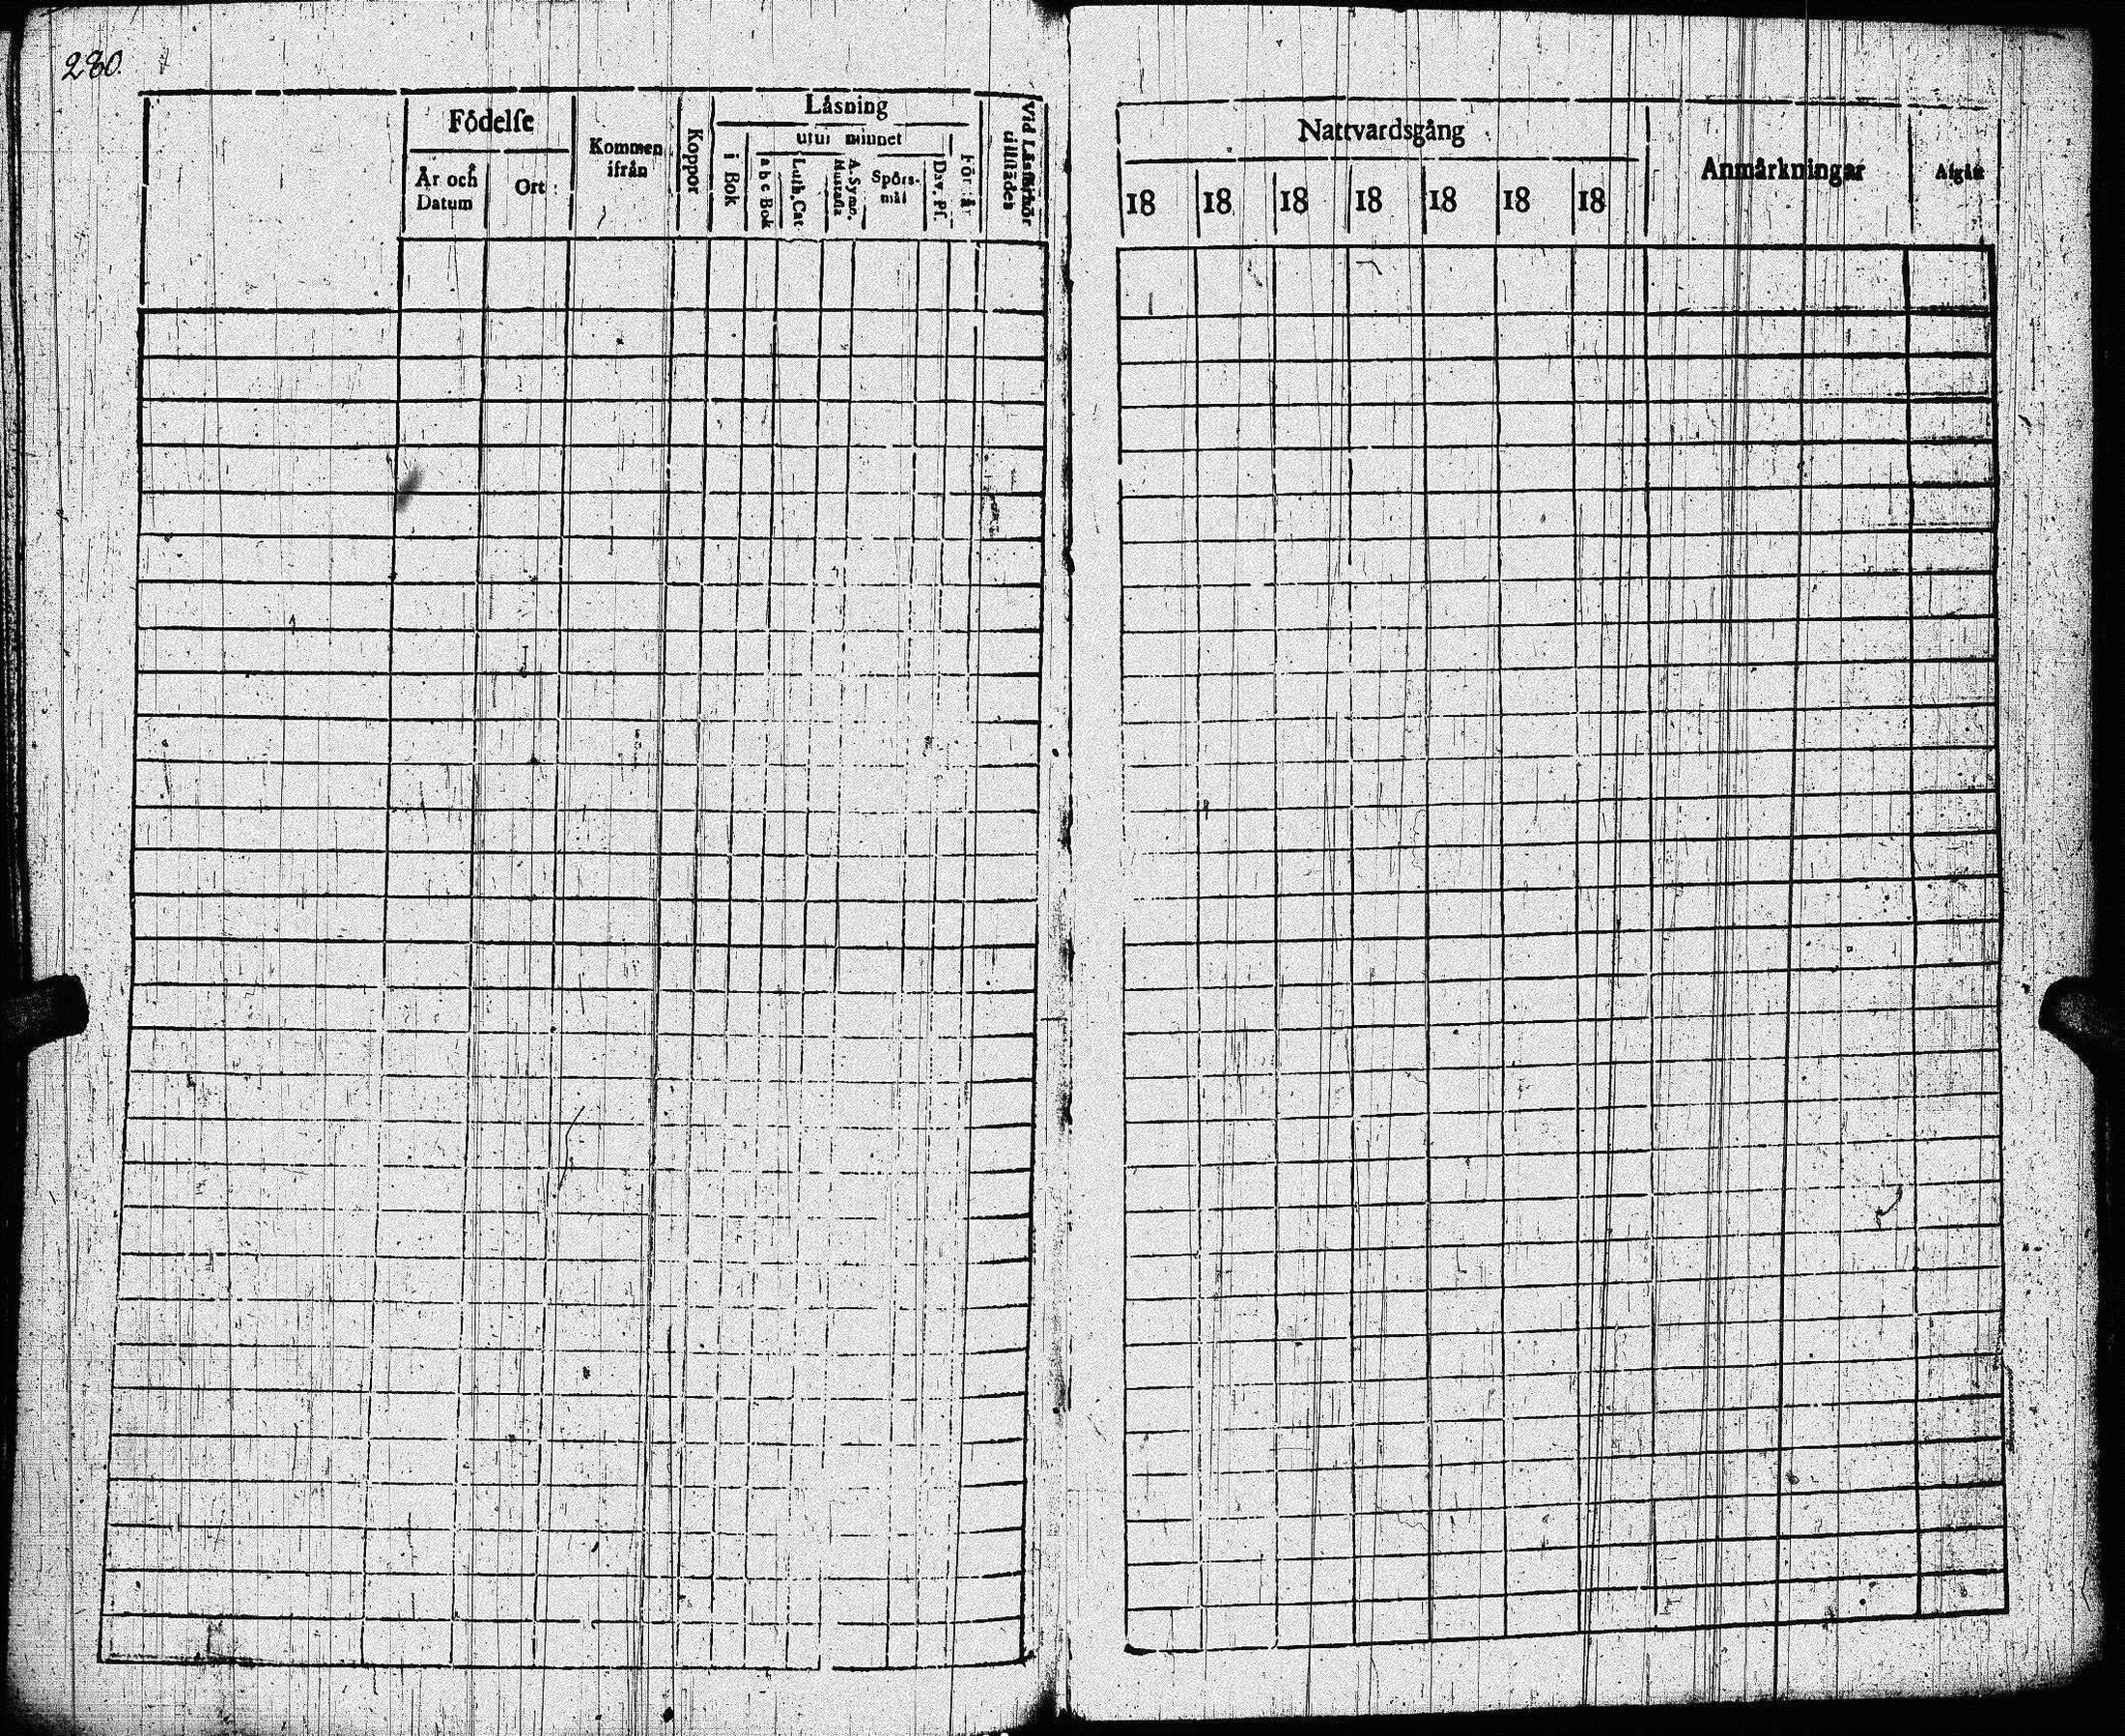 280.
Födelse
År och Datum
Ort
Kommen ifrån
Koppor
Läsning
i Bok
utur minnet
a b c Bok
Luth. Cat
A. Symb.
Spörsmål
Dav. Ps.
För år
Vid Läsförhör tillstädes
Nattvardsgång
18 18 18 18 18 18 18
Anmärkningar
Afgått